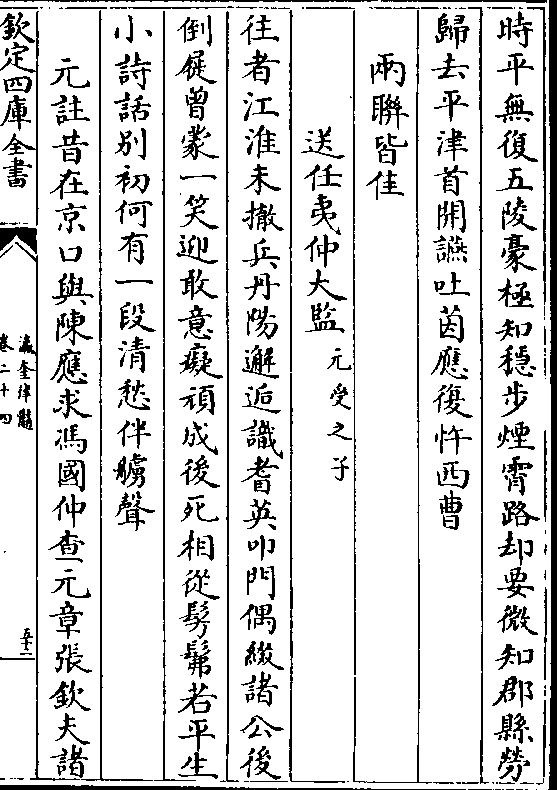 時平無復五陵豪極知穩步煙霄路却要微知郡縣勞
歸去平津首開讌吐茵應復忤西曹
兩聯皆佳
送任夷仲大監元受之子
往者江淮未撤兵丹陽邂逅識耆英叩門偶綴諸公後
倒屣曾蒙一笑迎敢意癡頑成後死相從髣髴若平生
小詩話別初何有一段清愁伴艣聲
元註昔在京口與陳應求馮國仲查元章張欽夫諸
欽定四庫全書
瀛奎律髓
卷二十四